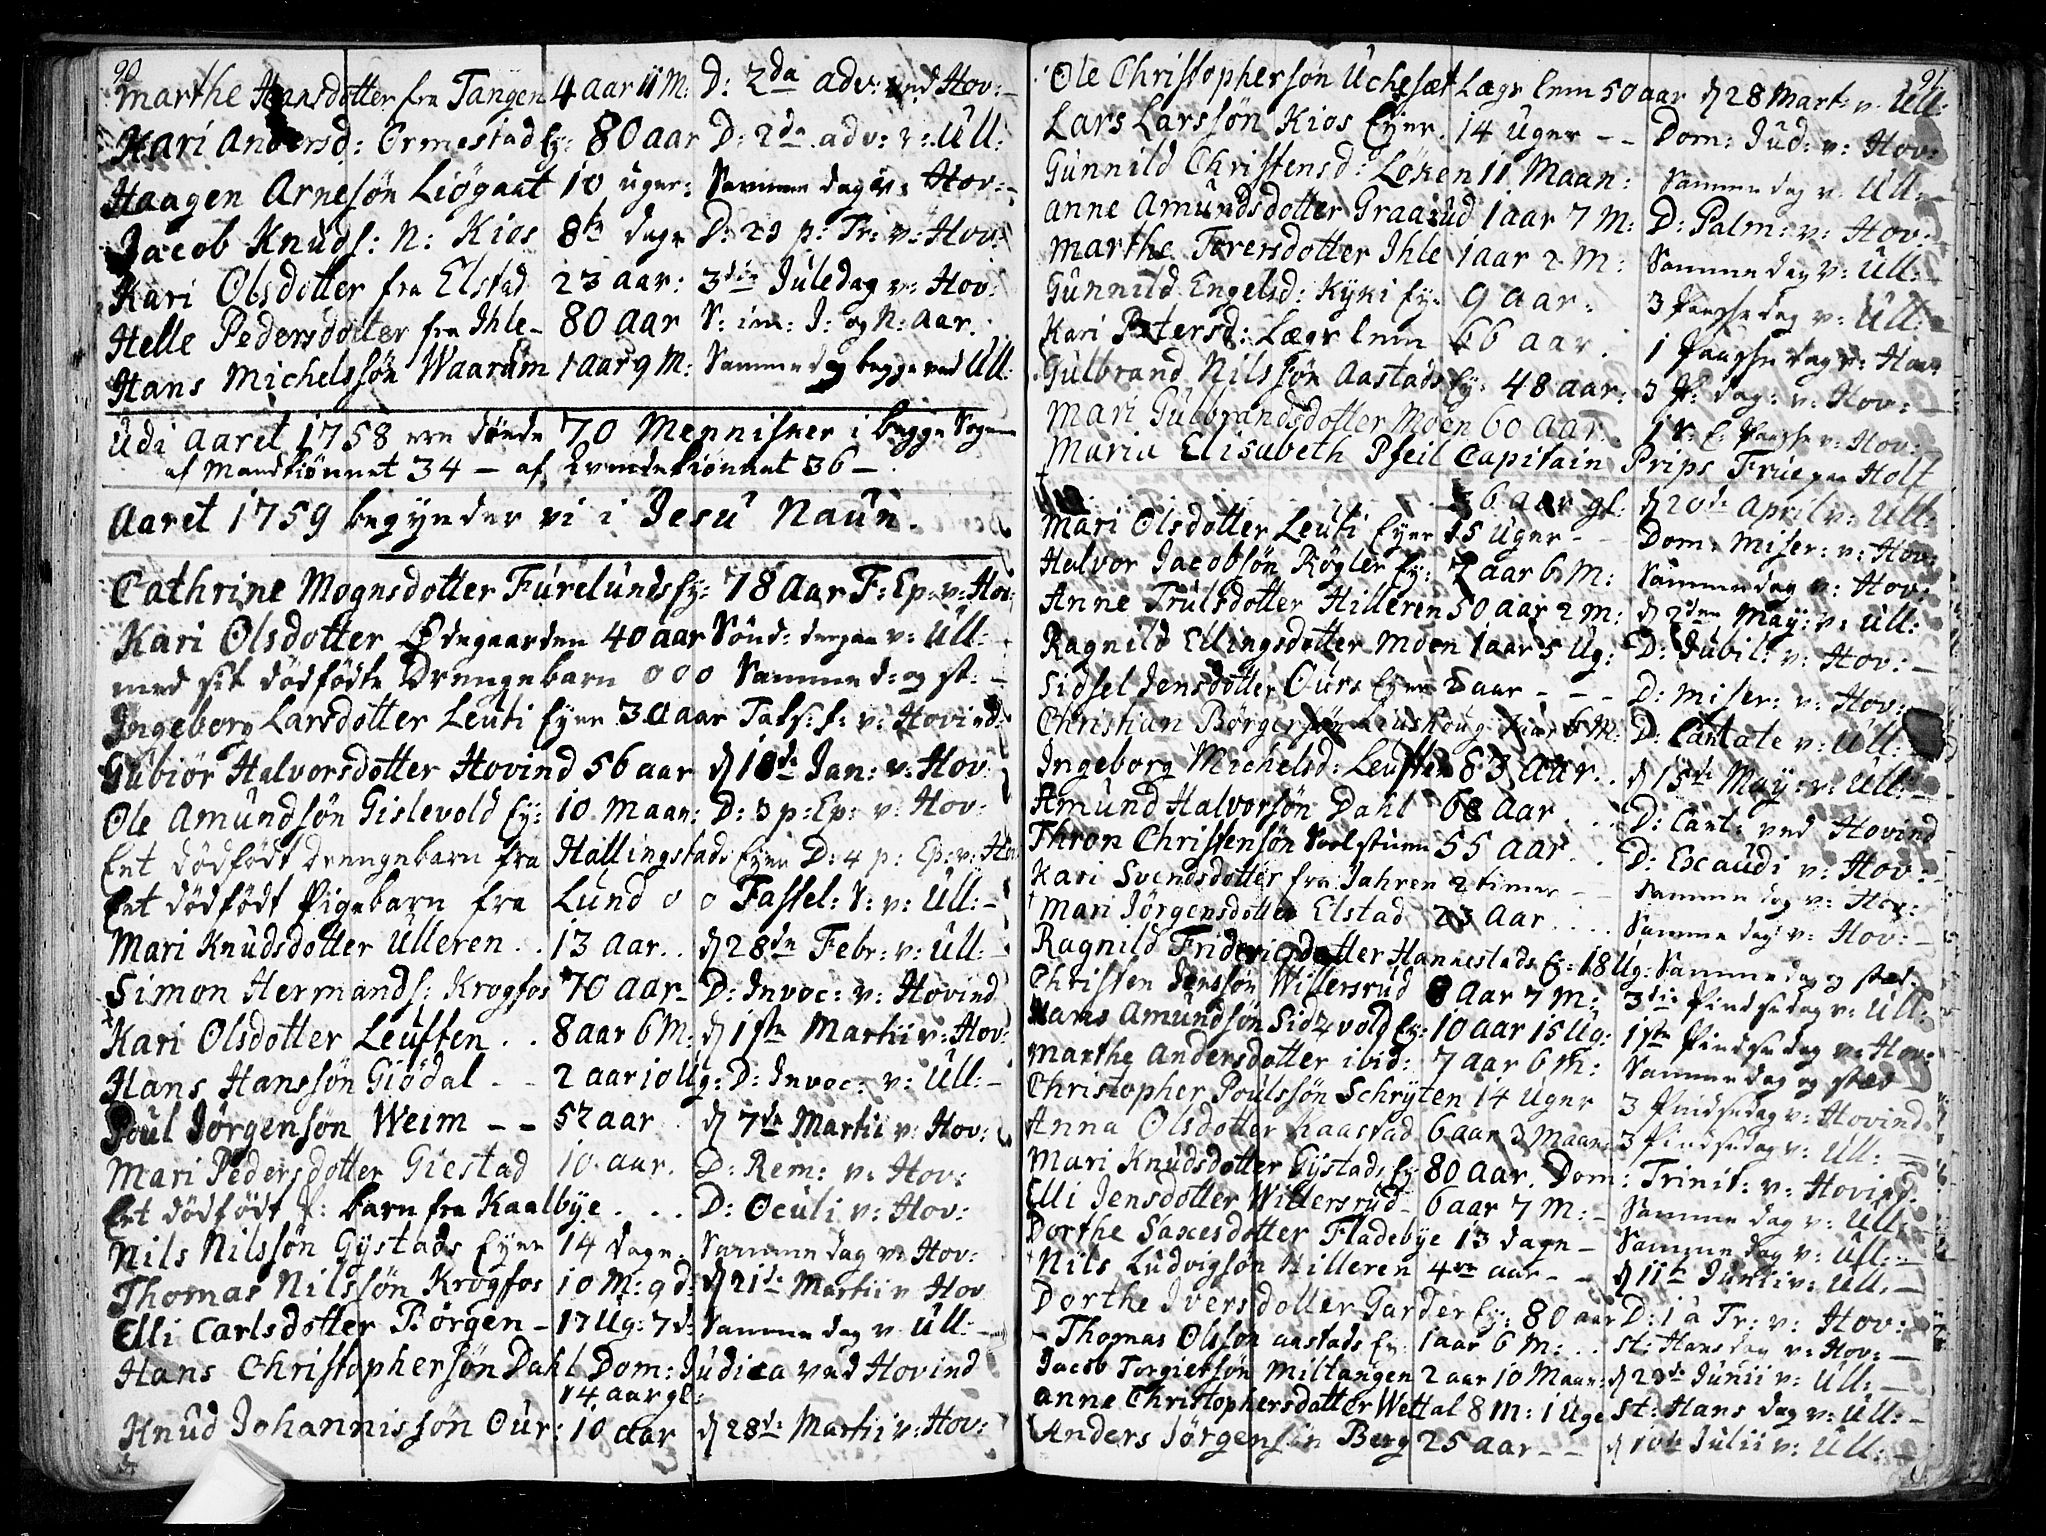 90
Marthe Hansdotter fra Tangen 4 aar 11 M: D: 2da adv: ved Hov:
Kari Andersd: Ormestad Ey: 80 aar D: 2da adv: v: Ull:
Haagen Arnesön Liögaat 10 uger: Samme dag v: Hov:
Jacob Knuds: N: Kios 8te dage D: 23 p: Tr: v: Hov:
Kari Olsdotter fra Elstad 23 aar: 3die Juledag v: Hov:
Helle Pedersdotter fra Ihle 80 aar S: im: J: og N: aar.
Hans Michelssön Waarum 1 aar 9 M: Samme dag begge ved Ull:
Udi Aaret 1758 ere döde 70 Mennisker i begge Sogne
af Mandkiönnet 34 – af Qvindekiönnet 36 –
Aaret 1759 begynder vi i Jesu Naun.
Cathrine Mognsdotter Furelunds Ey: 78 Aar F: Ep: v: Hov:
Kari Olsdotter Ödegaarden 40 aar Sönd: derpaa v: Ull:
med sit dödfödte Drengebarn 0 0 0 Samme d: og st:
Ingeborg Larsdotter Leuti Eyer 30 aar Tafs: f: v: Hovind:
Gubiör Halvorsdotter Hovind 56 aar d 18de Jan: v: Hov:
Ole Amundsön Gislevold Ey: 10 Maan: D: 3 p: Ep: v: Hov:
Eet dödfödt drengebarn fra Hallingstads Eye D: 4 p: Ep: v: Hov
Eet dödfödt Pigebarn fra Lund 0 0 Fastel: S: v: Ull:
Mari Knudsdotter Ulleren . . 13 Aar . . d 28de Febr: v: Ull:
Simon Hermands: Krogfos 70 Aar D: Invoc: v: Hovind
Kari Olsdotter Leuften . . 8 aar 6 M: d 1ste Martii v: Hov:
Hans Hanssön Giödal - - 2 aar 10 Ug: D: Invoc: v: Ull:
Poul Jörgensön Weim - - 52 aar . d 7de Martii v: Hov:
Mari Pedersdotter Giestad 10 aar. D: Rem: v: Hov:
Eet dödfödt d: barn fra Kaalbye . . . D: Oculi v: Hov:
Nils Nilssön Gystads Eyer 14 dage. Samme dag v: Hov:
Thomas Nilssön Krogfos 10 M: 9 d: d 21de Martii v Hov
Elli Carlsdotter Börgen - 17 Ug: 7 d: Samme dag v Ull:
Hans Christophersön Dahl Dom: Judica ved Hovind
14 aar gl:
Knud Johannissön Our: 10 aar d 28de Martii v: Hov:
91
Ole Christophersön Uchesæt Lægs lem 50 aar d 28 Mart: v. Ull:
Lars Larssön Kios Eyer. 14 Uger - - Dom: Jud: v: Hov:
Gunnild Christensd: Löken 11 Maan: Samme dag v: Ull:
Anne Amundsdotter Graarud 1 aar 7 M: D: Palm: v: Hov:
Marthe Torersdotter Ihle 1 aar 2 M: Samme dag v: Ull:
Gunnild Engelsd: Kyki Ey: 9 aar. 3 Paaske dag v: Ull:
Kari Petersd: Lægs lem 66 aar. 1 Paaske dag v: Hov
Gulbrand Nilssön Aastads Ey: 48 aar: 3 P: dag: v: Hov:
Mari Gulbrandsdotter Moen 60 aar. 1 S: E: Paaske v: Hov:
Maria Elisabeth Pfeil Capitain Prips Frue paa Holt
36 aar gl: d 20de April v: Ull:
Mari Olsdotter Leuti Eyer 15 Uger - - Dom: Miser: v: Hov:
Halvor Jacobsön Rögler Ey: 2 aar 6 M: Samme dag v: Hov:
Anne Trulsdotter Hilleren 50 aar 2 M: d 2den May: v: Ull:
Ragnild Ellingsdotter Moen 1 aar 5 Ug: D: Jubil: v: Hov:
Sidsel Jensdotter Ours Eyer 8 aar - - - D: Miser: v: Hov:
Christian Börgersön Leuskoug 6 M: D: Cantate v: Ull:
Ingeborg Michelsd: Leuften 83 Aar . . d 15de May: v: Ull:
Amund Halvorsön Dahl 68 Aar . . . D: Cant: ved Hovind
Thron Christensön 55 aar . . D: Exaudi v: Hov:
Kari Svendsdotter fra Jahren 2 timer - Samme dag v: Hov:
Mari Jörgensdotter Elstad 23 Aar . . . . Samme dag v: Hov:
Ragnild Fridericsdotter Hannestads Ey: 18 Ug: Samme dag og sted.
Christen Jenssön Willersrud 8 Aar 7 M: 3die Pindsedag v: Ull:
Hans Amundsön Sidzvold Ey: 10 aar 15 Ug: 1ste Pindsedag v: Hov:
Marthe Andersdotter ibid: 7 aar 6 M: Samme dag og sted
Christopher Poulssön Schryten 14 Uger 3 Pindsedag v: Hovind
Anna Olsdotter Haastad 6 aar 3 Maan: 3 Pindsedag v: Ull:
Mari Knudsdotter Gystads Ey 80 Aar. Dom: Trinit: v: Hovind
Elli Jensdotter Willersrud - 6 aar 7 M: Samme dag v: Ull:
Dorthe Saxesdotter Fladebye 13 dage - Samme dag v: Ull:
Nils Ludvigsön Hilleren 4re aar - - d 11te Junii v: Ull:
Dorthe Iversdotter Garder Ey: 80 aar D: 1 a Tr: v: Hov:
Thomas Olssön Aastads Ey. 1 aar 6 M: . . St: Hans dag v: Hov:
Jacob Torgiersön Miltangen 2 aar 10 Maan: d 23de Junii v: Ull:
Anne Christophersdatter Wettal 8 M: 1 Uge St: Hans dag v: Ull:
Anders Jörgensön Berg 25 aar - - d 10de Julii v: Ull: